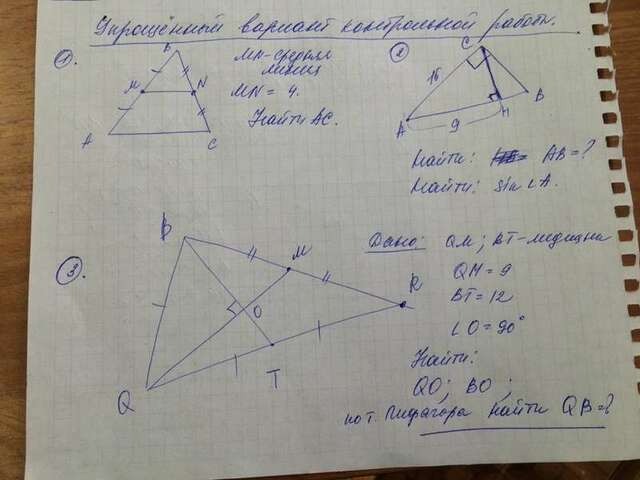 Упрощённый вариант контрольной работы.
1.
B
M
N
A
C
MN-средняя
линия
MN = 4.
Найти AC.
2
C
15
A
9
H
B
Найти: AB=?
Найти: sin ∠A.
3.
B
M
R
O
Q
T
Дано: QM; BT-медианы
QM = 9
BT = 12
∠O = 90°
Найти:
QO; BO;
по т. Пифагора найти QB=?